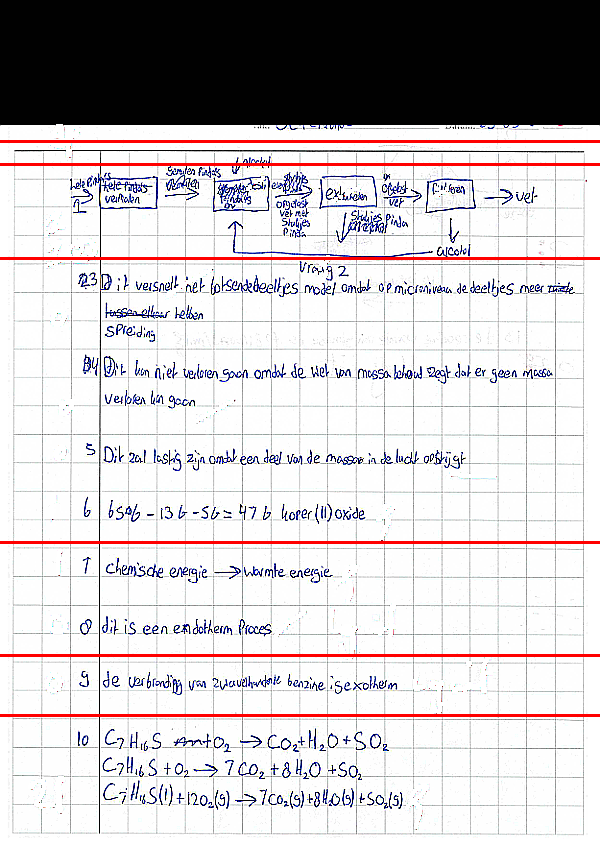 hele Pinda's
1
hele Pinda's
vermalen
Gemalen Pinda's
extraheren
opgelost
vet met
Stukjes
Pinda
Stukjes Pinda
opgelost
vet
filtreren
vet
alcohol
Vraag 2
3 Dit versnelt het botsendedeeltjes model omdat op microniveau de deeltjes meer
tussen elkaar hebben
spreiding
4 Dit kan niet verloren gaan omdat de Wet van massabehoud zegt dat er geen massa
verloren kan gaan
5 Dit zal lastig zijn omdat een deel van de massa in de lucht opstijgt
6 65 - 13 6 - 56 = 47 6 koper(II)oxide
7 Chemische energie → warmte energie
8 dit is een endotherm Proces
9 de verbranding van zwavelhoudende benzine is exotherm
10 C7H16S + O2 → CO2 + H2O + SO2
C7H16S + O2 → 7CO2 + 8H2O + SO2
C7H16S(l) + 12O2(g) → 7CO2(g) + 8H2O(g) + SO2(g)